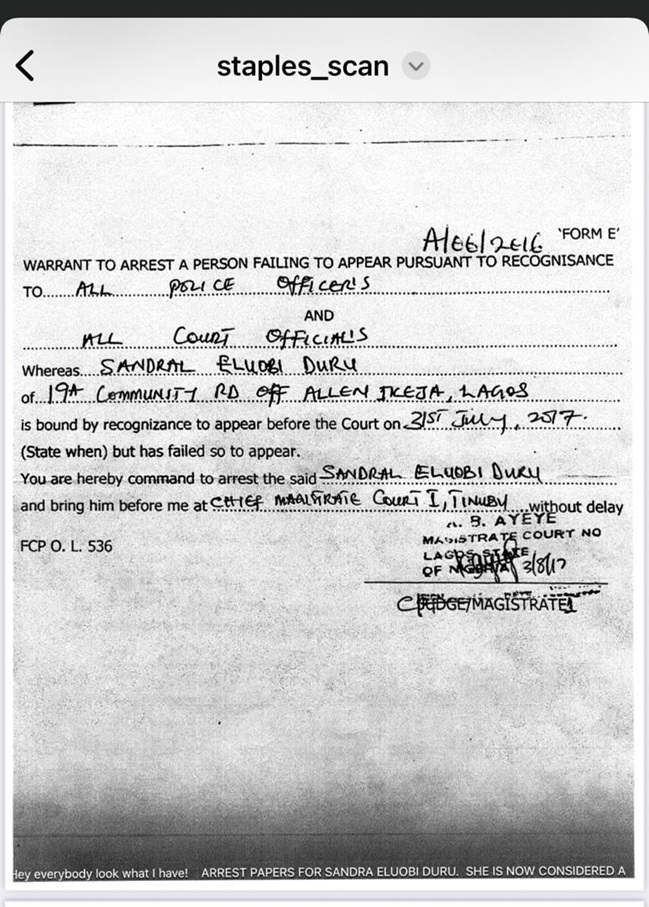 staples_scan
A/66/2016 'FORM E'
WARRANT TO ARREST A PERSON FAILING TO APPEAR PURSUANT TO RECOGNISANCE
TO ALL POLICE OFFICER'S
AND
ALL COURT OFFICIAL'S
Whereas SANDRAL ELUOBI DURU
of 19A COMMUNITY RD OFF ALLEN IKEJA, LAGOS
is bound by recognizance to appear before the Court on 31ST July, 2017.
(State when) but has failed so to appear.
You are hereby command to arrest the said SANDRAL ELUOBI DURU
and bring him before me at CHIEF MAGISTRATE COURT I, TINUBU without delay
A. B. AYEYE
MAGISTRATE COURT NO
FCP O. L. 536
LAGOS STATE
OF NIGERIA 3/8/17
JUDGE/MAGISTRATE
Hey everybody look what I have! ARREST PAPERS FOR SANDRA ELUOBI DURU. SHE IS NOW CONSIDERED A